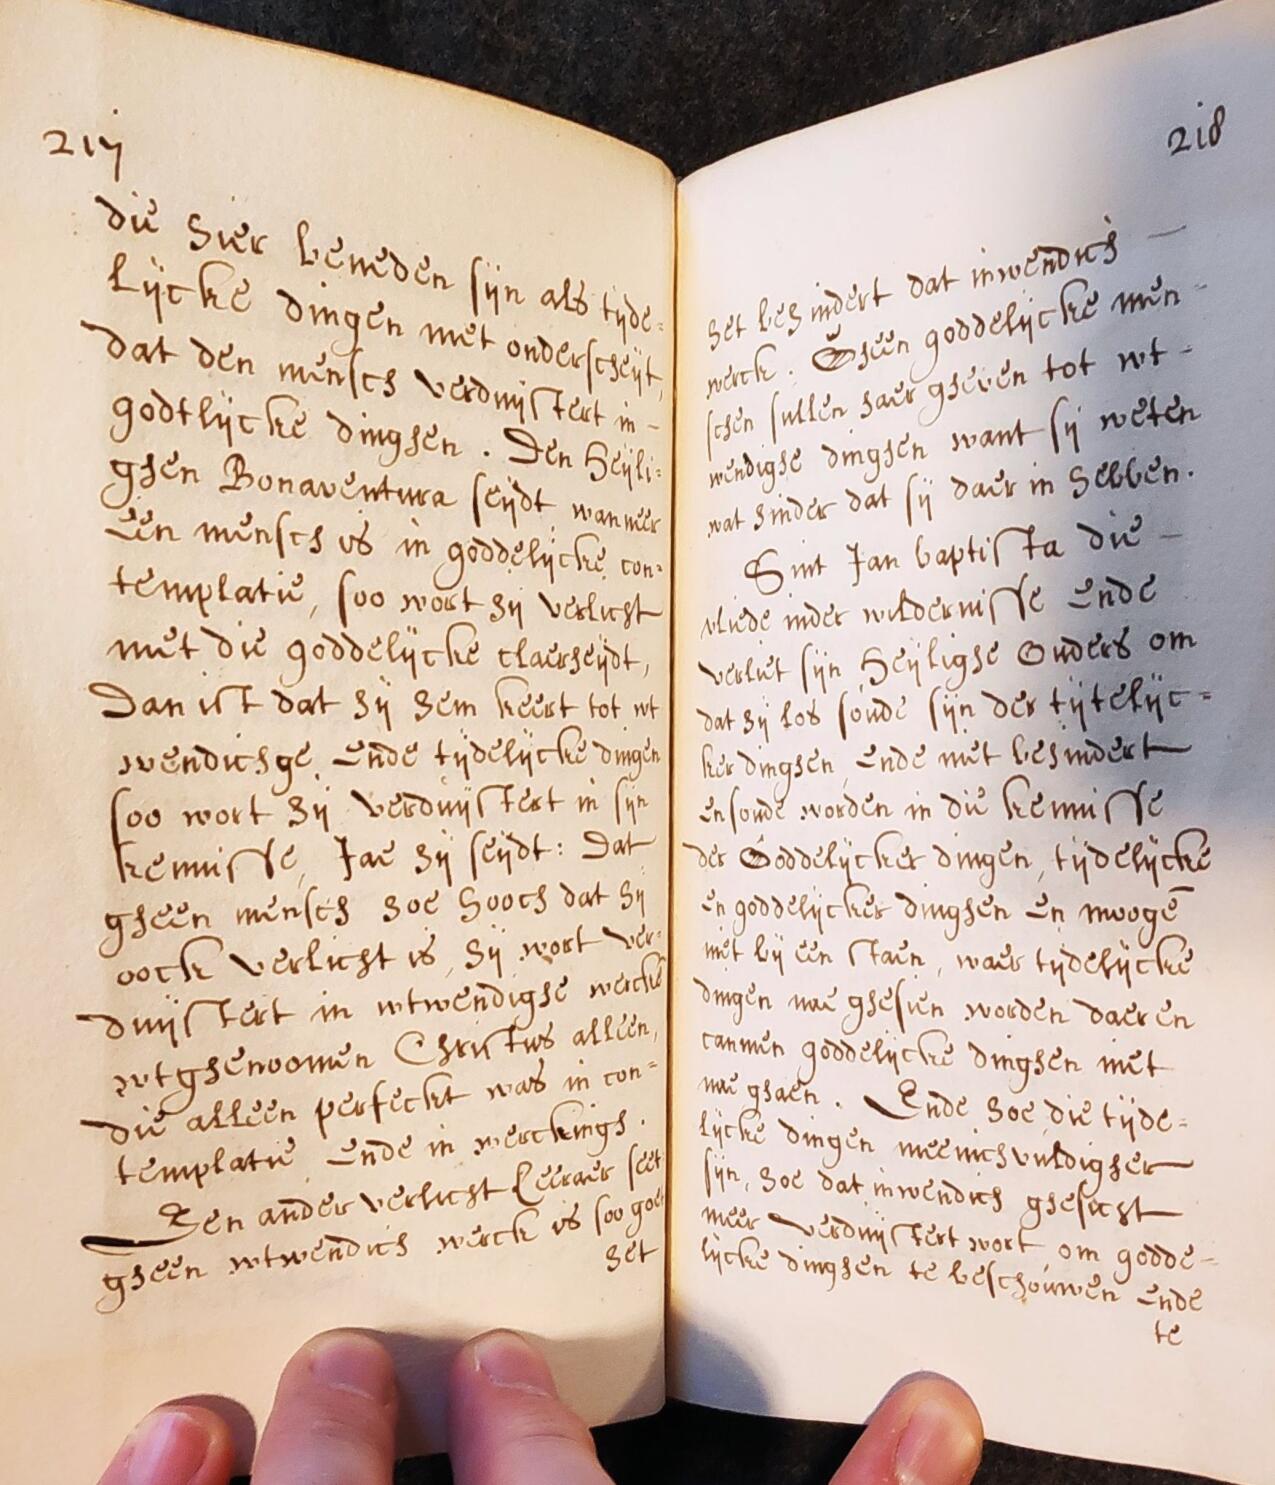 217
die hier beneden sijn als tijde=
lijcke dingen met onderscheijt,
dat den mensch verduijstert in -
godtlijcke dinghen . Den Heijli=
ghen Bonaventura seijdt, wanneer
Een mensch is in goddelijcke con=
templatie, soo wort hij verlicht
met die goddelijcke claerheijdt,
Dan ist dat hij hem keert tot wt
wendichge, Ende tijdelijcke dingen
soo wort hij verduijstert in sijn
kennisse, Jae hij seijdt: Dat
gheen mensch hoe hooch dat hij
oock verlicht is, hij wort ver=
duijstert in wtwendighe wercke
wtghenoomen Christus alleen,
die alleen perfeckt was in con=
templatie Ende in werckings .
Een ander verlicht Leeraer seet
gheen wtwendich werck is soo goet
het
218
het behindert dat inwendich -
werck . Gheen goddelijcke men -
schen sullen haer gheven tot wt -
wendighe dinghen want sij weten
wat hinder dat sij daer in hebben.
Sint Jan baptista die -
vliede inder wildernisse Ende
verliet sijn Heijlighe Ouders om
dat hij los soude sijn der tijtelijc=
ker dinghen, Ende niet behindert
en soude worden in die kennisse
der Goddelijcker dingen, tijdelijcke
en goddelijcker dinghen En mooge̅
niet bij een staen, waer tijdelijcke
dingen nae ghesien worden daer en
canmen goddelijcke dinghen niet
nae ghaen . Ende hoe die tijde=
lijcke dingen meenichvuldigher
sijn, hoe dat inwendich ghesicht
meer verduijstert wort om godde=
lijcke dinghen te beschouwen Ende
te